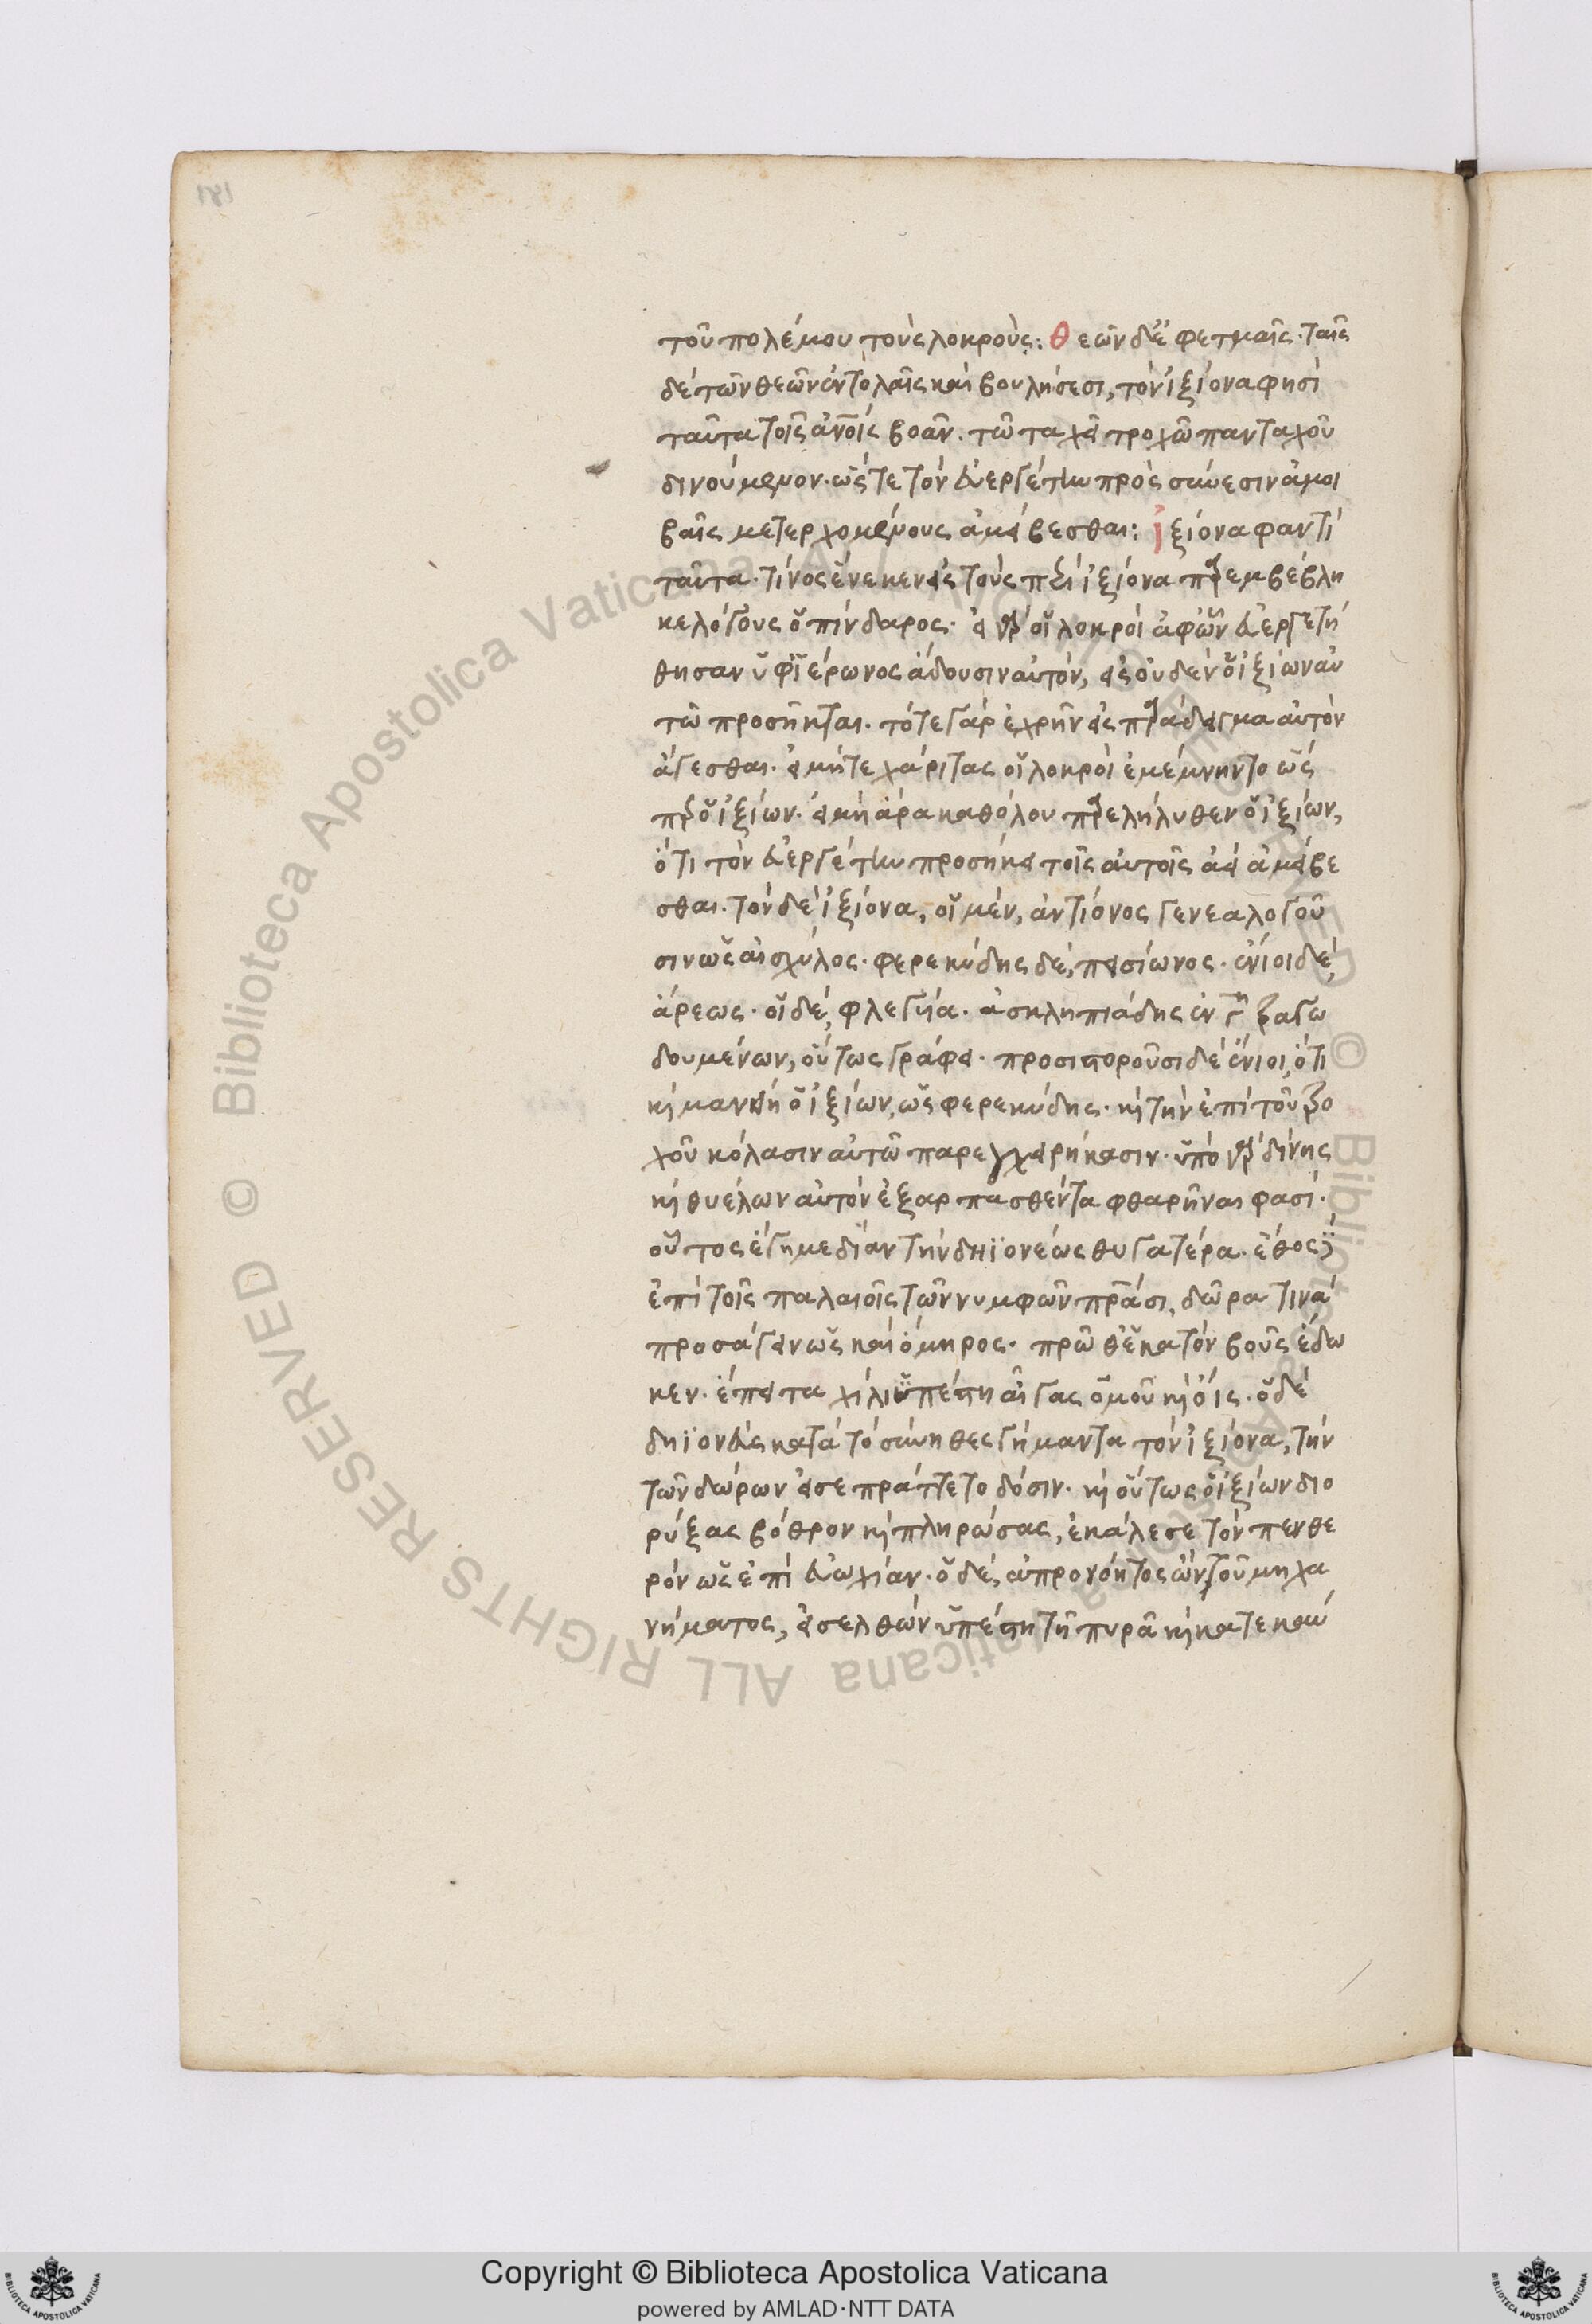 τοῦ πολέμου τοὺς λοκρούς: θεῶν δ' ἐφετμαῖς· ταῖς
δὲ τῶν θεῶν ἐντολαῖς καὶ βουλήσεσι, τὸν ἰξίονα φησὶ
ταῦτα τοῖς ἀν̅οις βοᾶν. τῶ ταχεῖ τροχῶ πανταχοῦ
δινούμενον. ὥστε τὸν εὐεργέτην πρὸς σύνεσιν ἀμοι
βαῖς μετερχομένους ἀμείβεσθαι: ἰξίονα φαντὶ
ταῦτα. τίνος ἕνεκεν εἰς τοὺς περὶ ἰξίονα παρεμβέβλη
κε λόγους ὁ πίνδαρος. εἰ γὰρ οἱ λοκροὶ ἀφ' ὧν εὐεργετή
θησαν ὑφ' ἱέρωνος ἄδουσιν αὐτόν, εἰς οὐδὲν ὁ ἰξίων αὐ
τῶ προσῆκται. τότε γὰρ ἐχρῆν εἰς παράδειγμα αὐτὸν
ἄγεσθαι. εἰ μήτε χάριτας οἱ λοκροὶ ἐμέμνηντο ὥσ
περ ὁ ἰξίων. εἰ μὴ ἄρα καθόλου παρελήλυθεν ὁ ἰξίων,
ὅτι τὸν εὐεργέτην προσήκει τοῖς αὐτοῖς ἀεὶ ἀμείβε
σθαι. τὸν δὲ ἰξίονα, οἱ μὲν, ἀντίονος γενεαλογοῦ
σιν ὡς αἰσχύλος. φερεκύδης δὲ, πεισίωνος. ἔνιοι δὲ,
ἄρεως. οἱ δὲ, φλεγύα. ἀσκληπιάδης ἐν γ̅ τραγω
δουμένων, οὕτως γράφει. προσιστοροῦσι δὲ ἔνιοι, ὅτι
καὶ μανείη ὁ ἰξίων, ὡς φερεκύδης. καὶ τὴν ἐπὶ τοῦ τρο
χοῦ κόλασιν αὐτῶ παρεγχειρήκασιν. ὑπὸ γὰρ δίνης
καὶ θυέλων αὐτὸν ἐξαρπασθέντα φθαρῆναι φασί.
οὗτος ἔγημε δῖαν τὴν δηϊονέως θυγατέρα. ἔθος δὲ
ἐπὶ τοῖς παλαιοῖς τῶν νυμφῶν πρ̅άσι, δῶρα τινὰ
προσάγειν ὡς καὶ ὅμηρος. πρῶθ' ἑκατὸν βοῦς ἔδω
κεν. ἔπειτα χίλι' ὑπέστη αἶγας ὁμοῦ καὶ ὄις. ὁ δὲ
δηϊονεὺς κατὰ τὸ σύνηθες γήμαντα τὸν ἰξίονα, τὴν
τῶν δώρων εἰσεπράττετο δόσιν. καὶ οὕτως ὁ ἰξίων διο
ρύξας βόθρον καὶ πληρώσας, ἐκάλεσε τὸν πενθε
ρὸν ὡς ἐπὶ εὐωχίαν. ὁ δὲ, ἀπρονόητος ὢν τοῦ μηχα
νήματος, εἰσελθὼν ὑπέστη τῆ πυρᾶ καὶ κατεκαύ